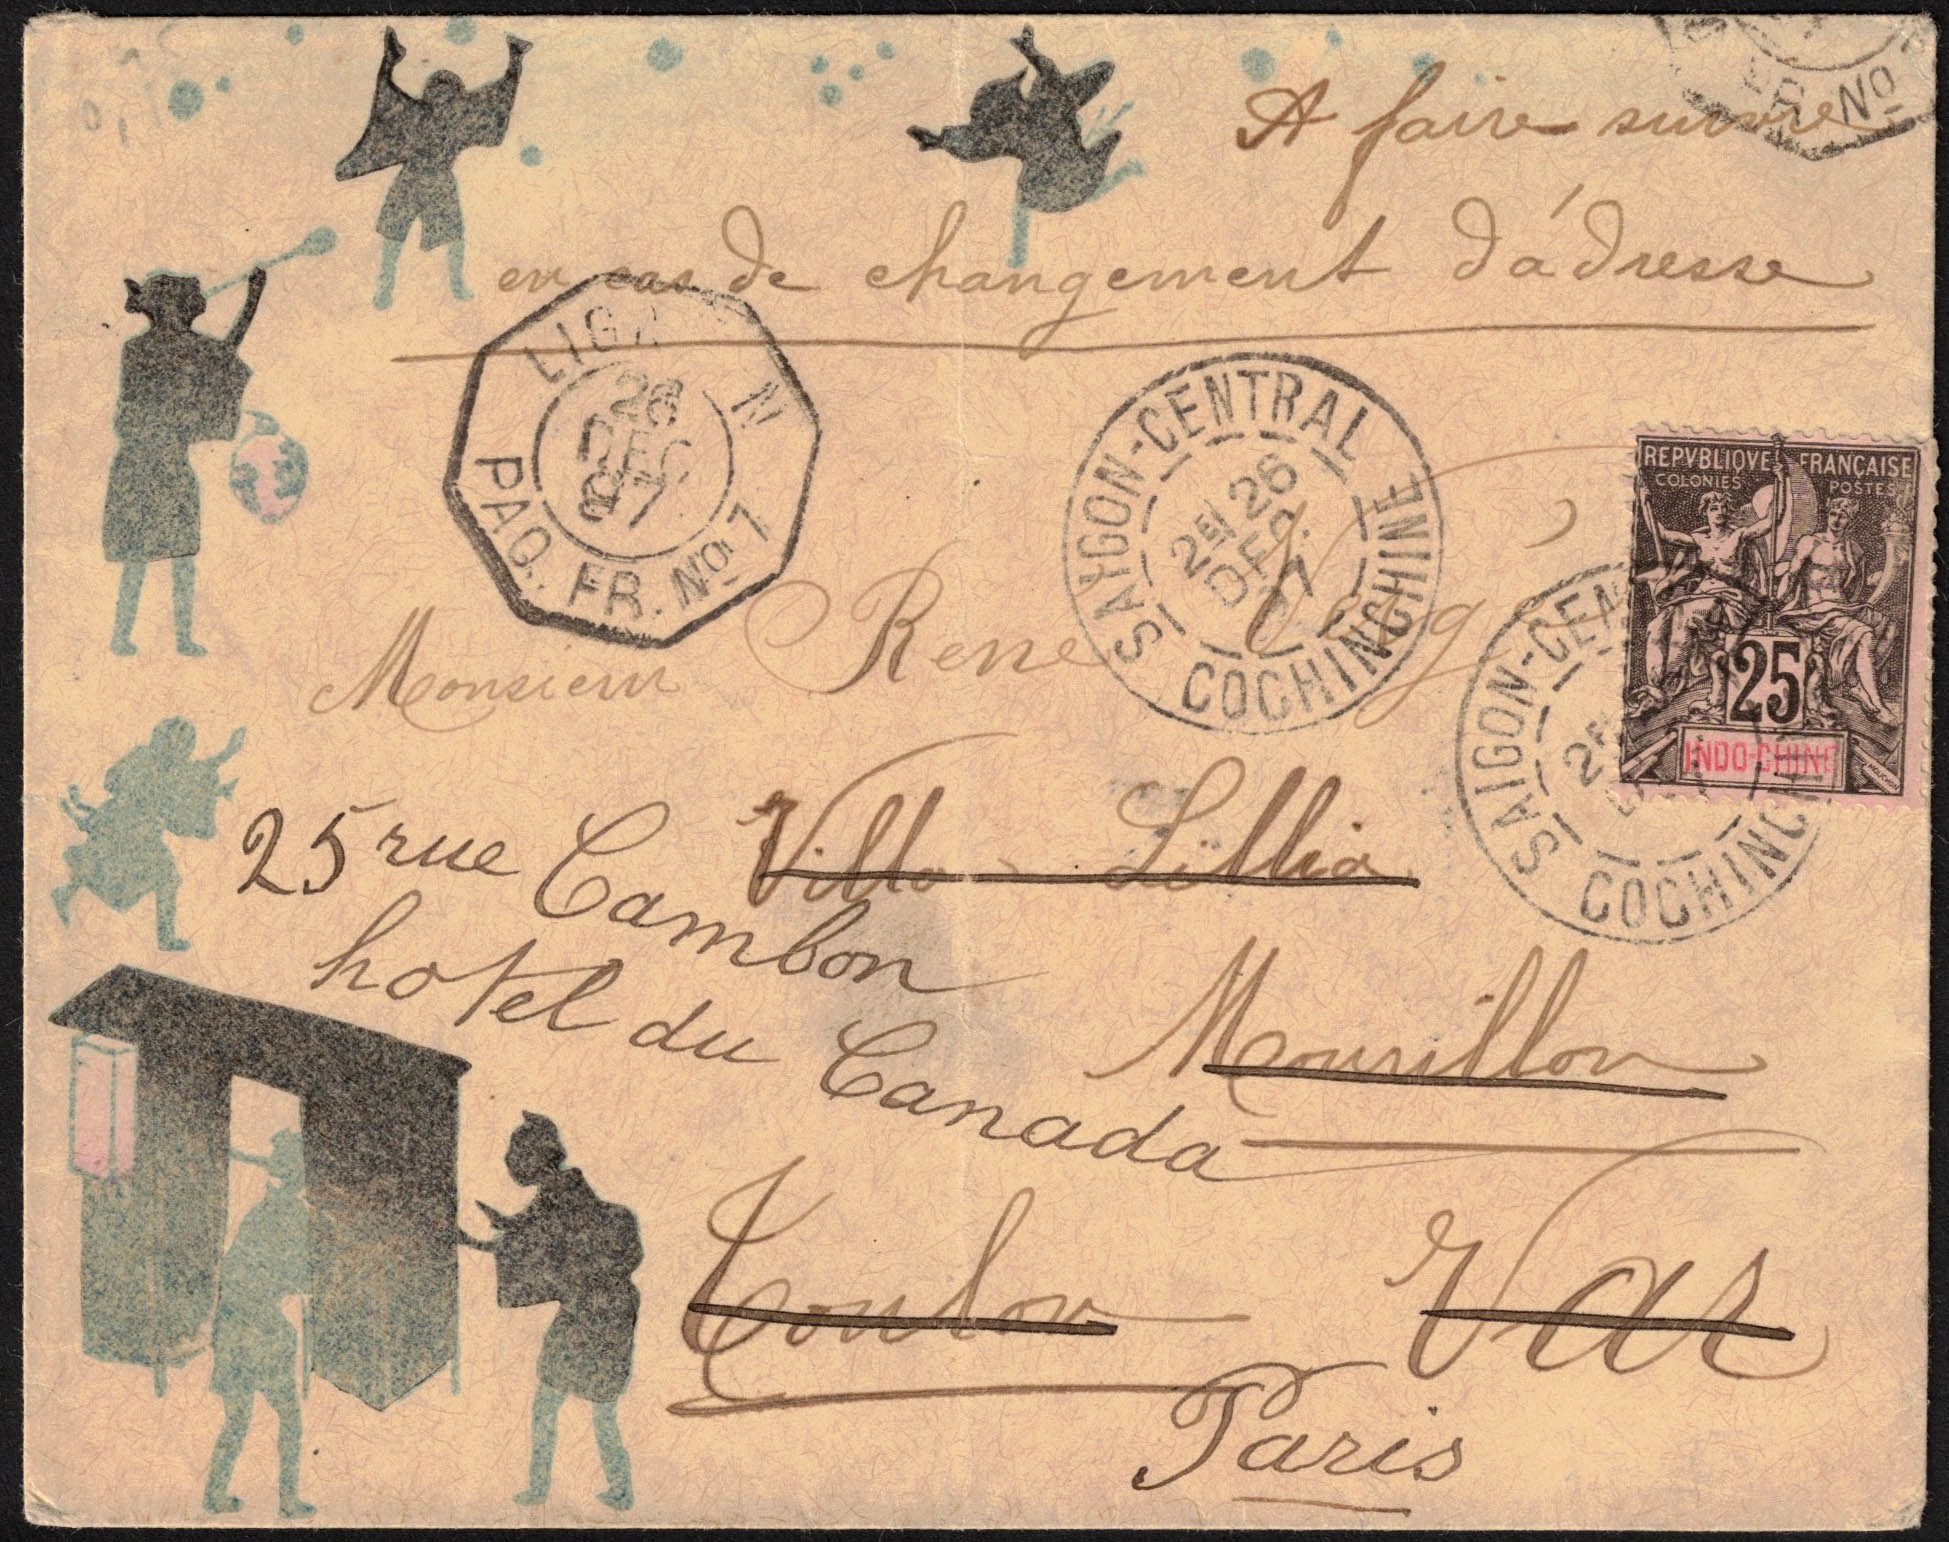 A faire suivre
FR. No
en cas de changement d'adresse
LIGN N
28
DEC
97
PAQ. FR. No 7
SAIGON-CENTRAL
2E 26
DEC.
97
COCHINCHINE
REPVBLIQVE FRANÇAISE
COLONIES POSTES
25
INDO-CHINE
MOUCHON
SAIGON-CEN
COCHINCHI
Monsieur René
Villa Lillia
25 rue Cambon
hotel du Canada
Mourillon
Toulon Var
Paris